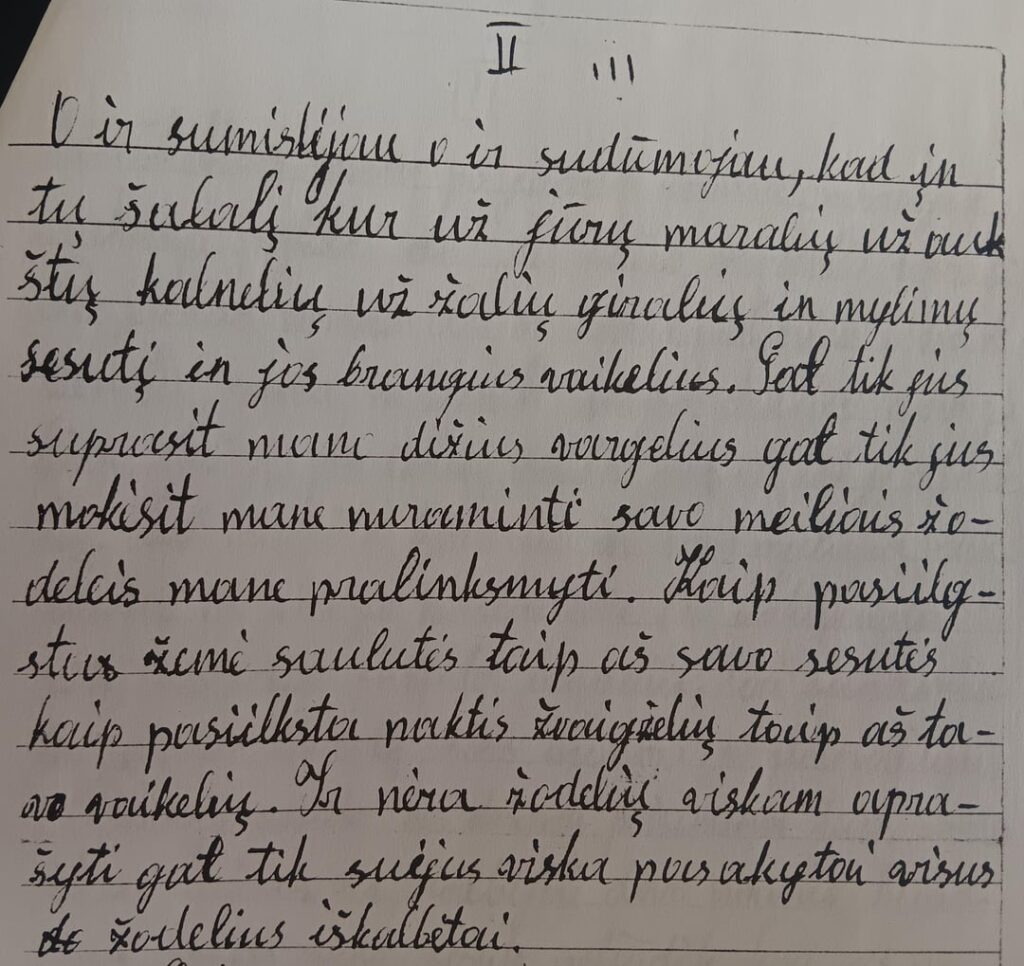 II III
O ir sumislijau o ir sudūmojau, kad įn
tų šalalį kur už jūrų maralių už auk
štų kalnelių už žalių giralių in mylimų
sesutį in jos brangius vaikelius. Gal tik jus
suprasit mane dižius vargelius gal tik jus
mokisit mane nuraminti savo meiliais žo-
deleis mane pralinksmyti. Kaip pasiilg-
stus žemė saulutės taip aš savo sesutės
kaip pasiilksta naktis žvaigželių taip aš ta-
vo vaikelių. Ir nėra žodelių viskam apra-
šyti gal tik suėjus viska pasakytai visus
žodelius iškalbėtai.